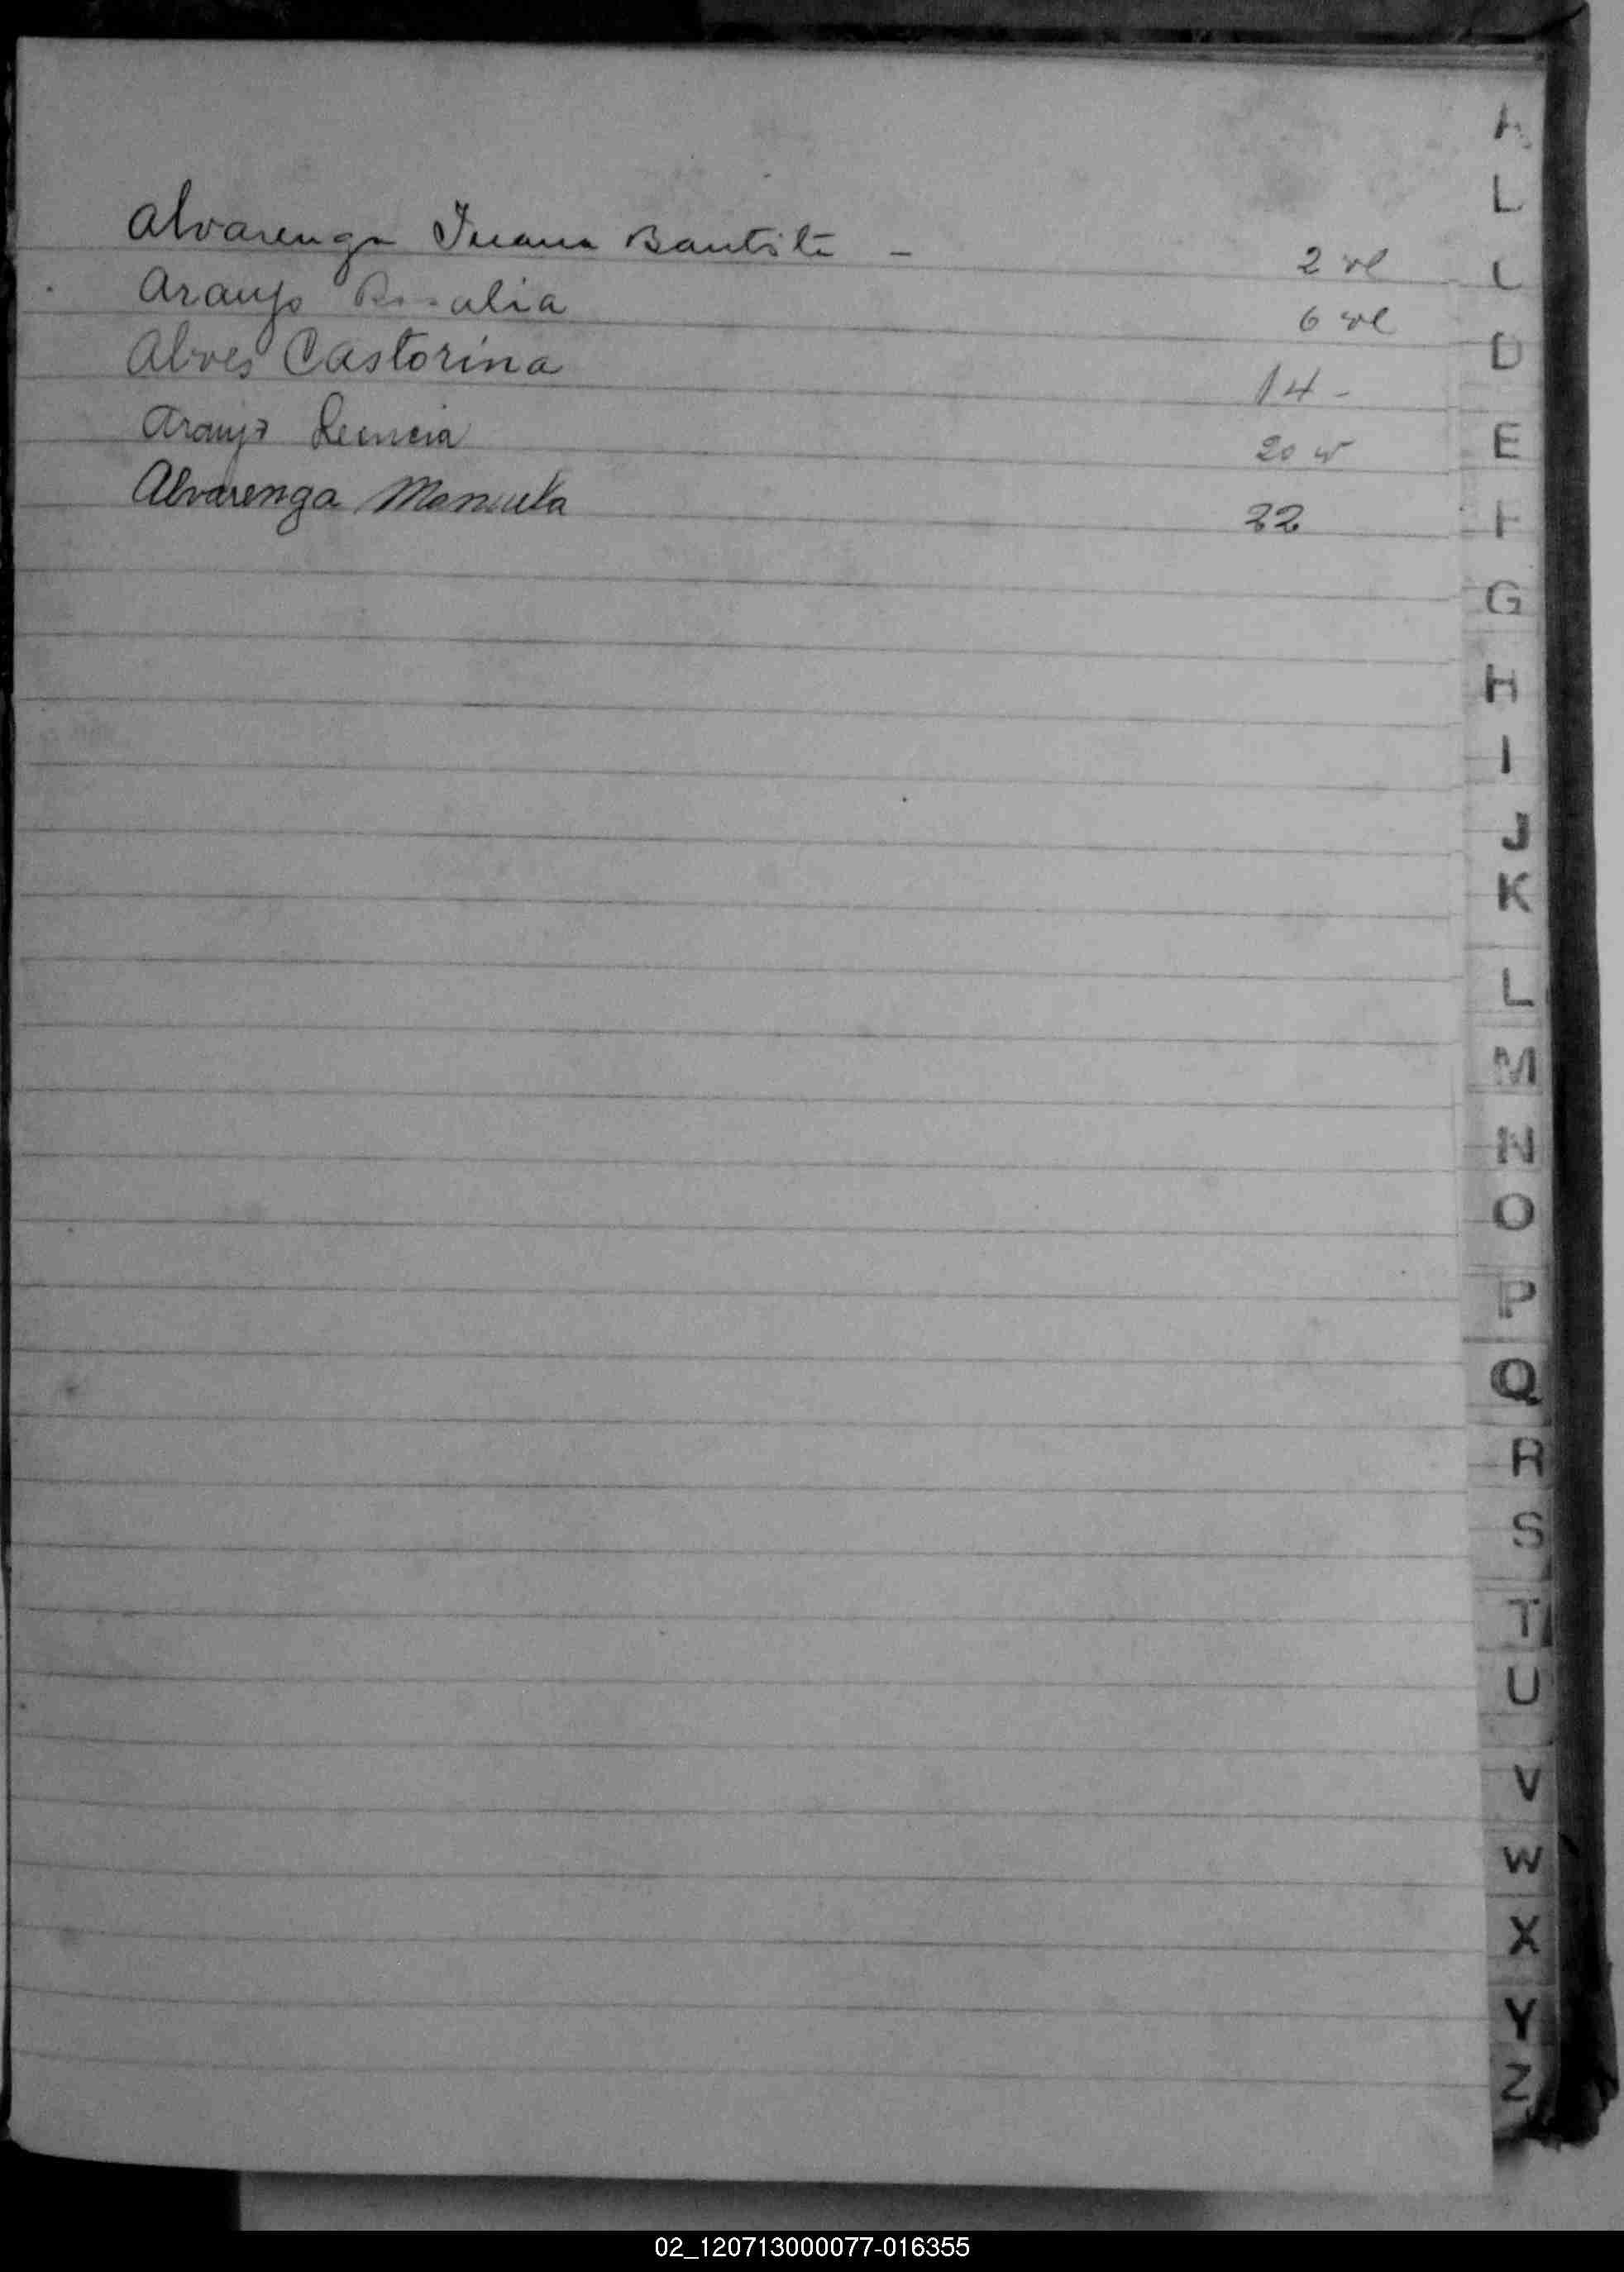 Alvarenga Juana Bautista - 2 vl
Araujo Rosalia 6 vl
Alves Castorina 14 -
Araujo 20 v
Alvarenga Manuela 22
A
L
L
D
E
F
G
H
I
J
K
L
M
N
O
P
Q
R
S
T
U
V
W
X
Y
Z
02_120713000077-016355